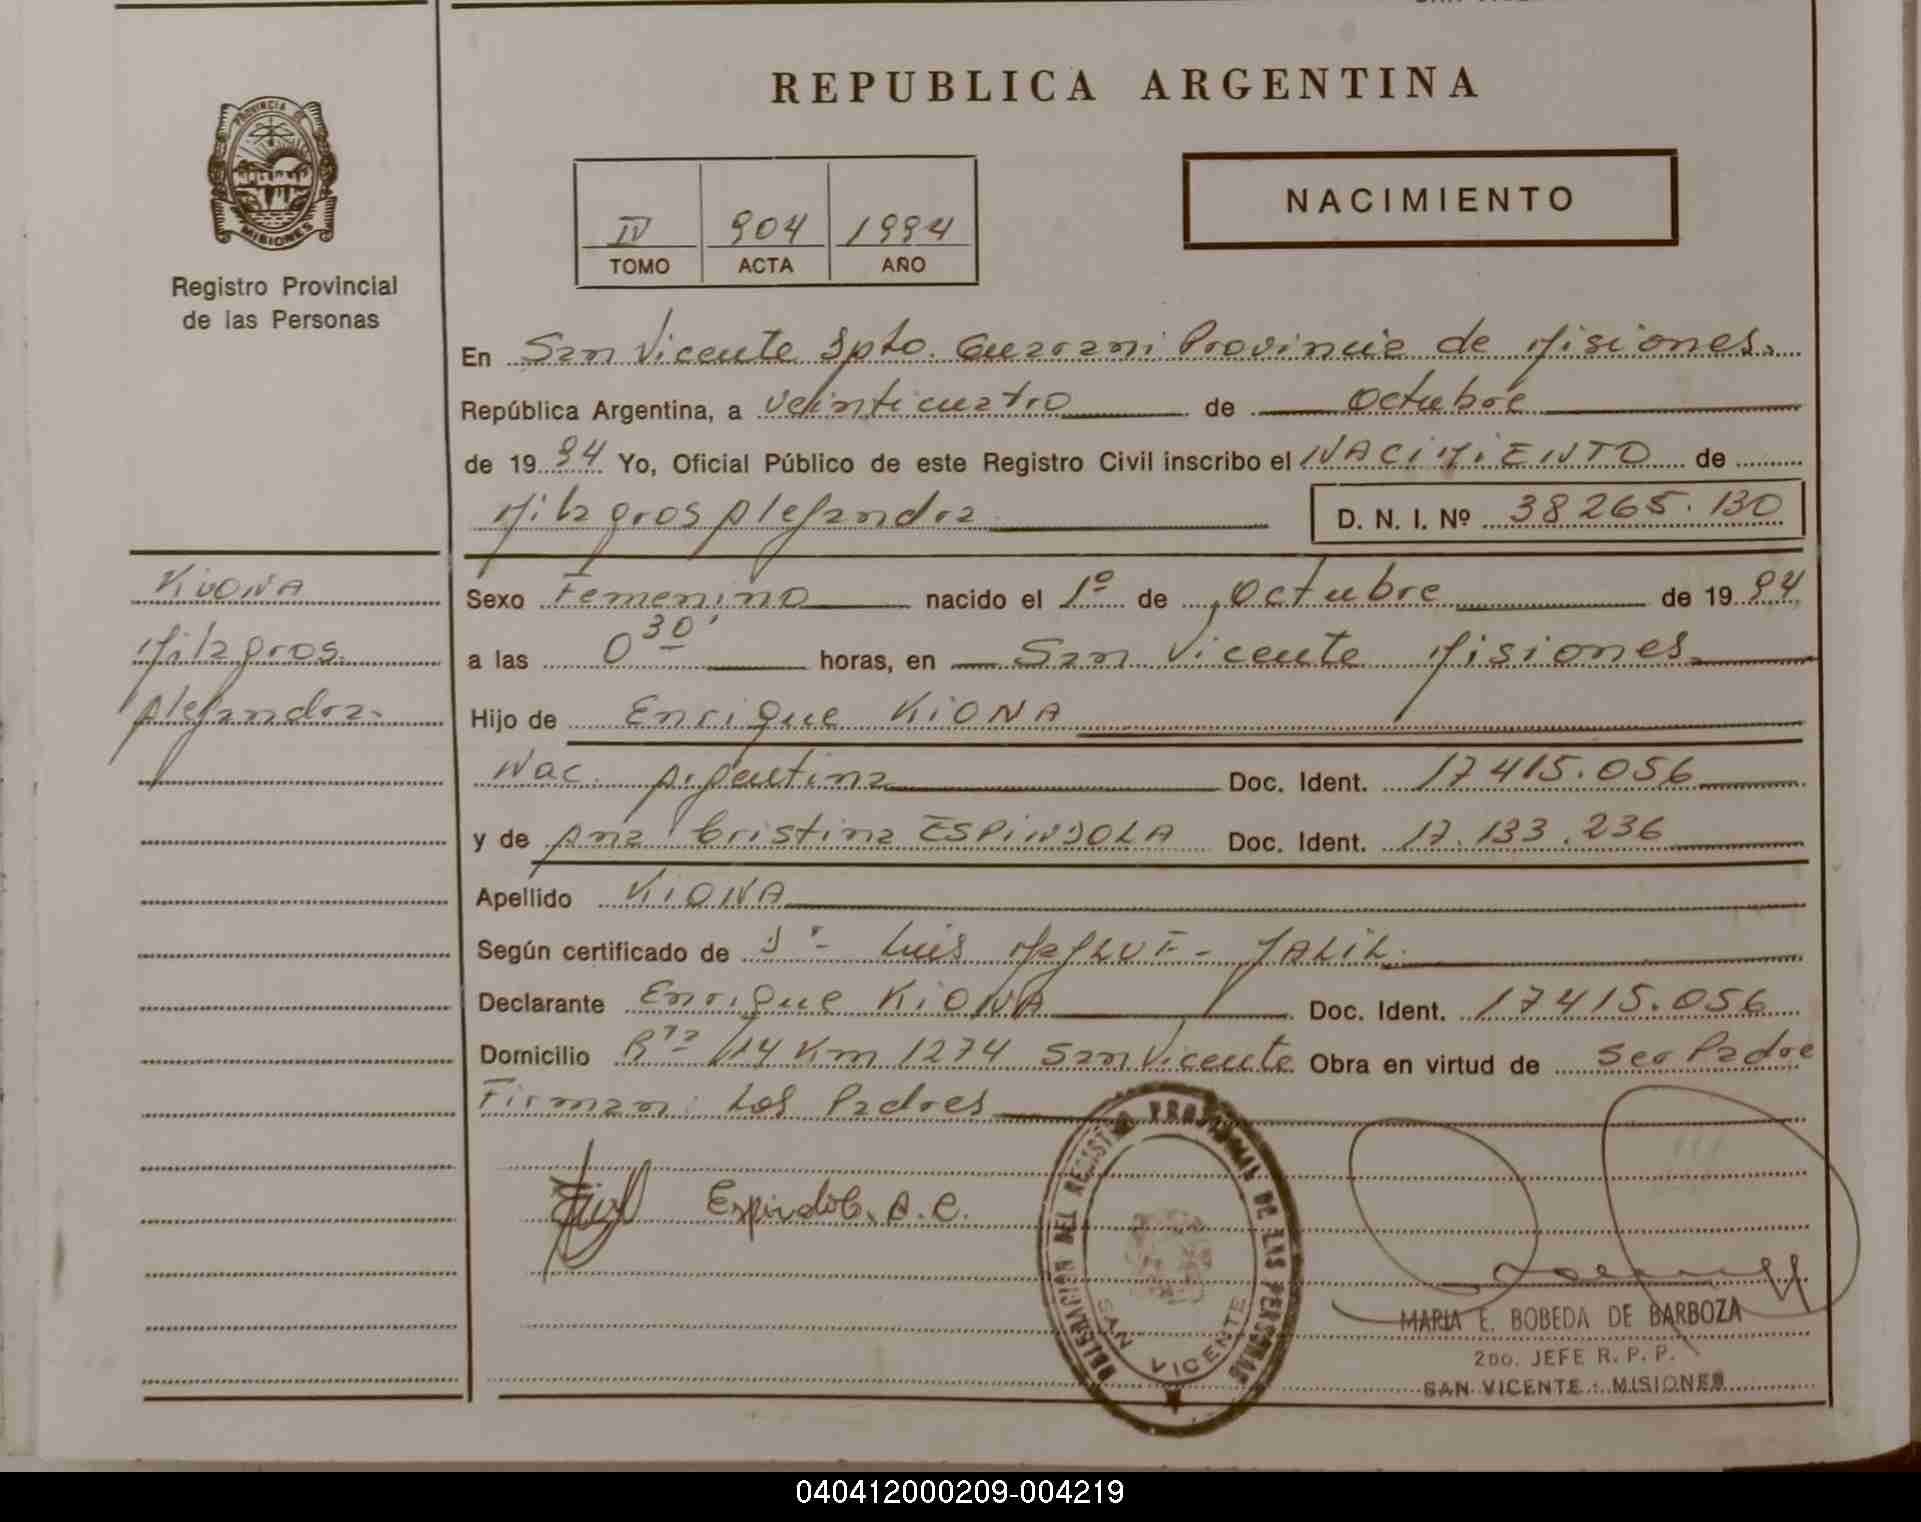 REPUBLICA ARGENTINA
PROVINCIA DE
MISIONES
Registro Provincial
de las Personas
NACIMIENTO
IV 904 1994
TOMO ACTA AÑO
En San Vicente Dpto. Guarani Provincia de Misiones.
República Argentina, a veinticuatro de octubre
de 1994 Yo, Oficial Público de este Registro Civil inscribo el NACIMIENTO de
Milagros Alejandra D. N. I. Nº 38265.130
KIONA
Milagros
Alejandra
Sexo Femenino nacido el 1º de octubre de 1994
a las 0 30' horas, en San Vicente Misiones
Hijo de Enrique KIONA
Nac. Argentina Doc. Ident. 17415.056
y de Ana Cristina ESPINDOLA Doc. Ident. 17.133.236
Apellido KIONA
Según certificado de Luis JALIL
Declarante Enrique KIONA Doc. Ident. 17415.056
Domicilio Rta 14 Km 1274 San Vicente Obra en virtud de ser Padre
Firman: Los Padres
Espindola A. C.
DELEGACION DEL REGISTRO PROVINCIAL DE LAS PERSONAS
SAN VICENTE
MARIA E. BOBEDA DE BARBOZA
2DO. JEFE R. P. P.
SAN VICENTE - MISIONES
040412000209-004219